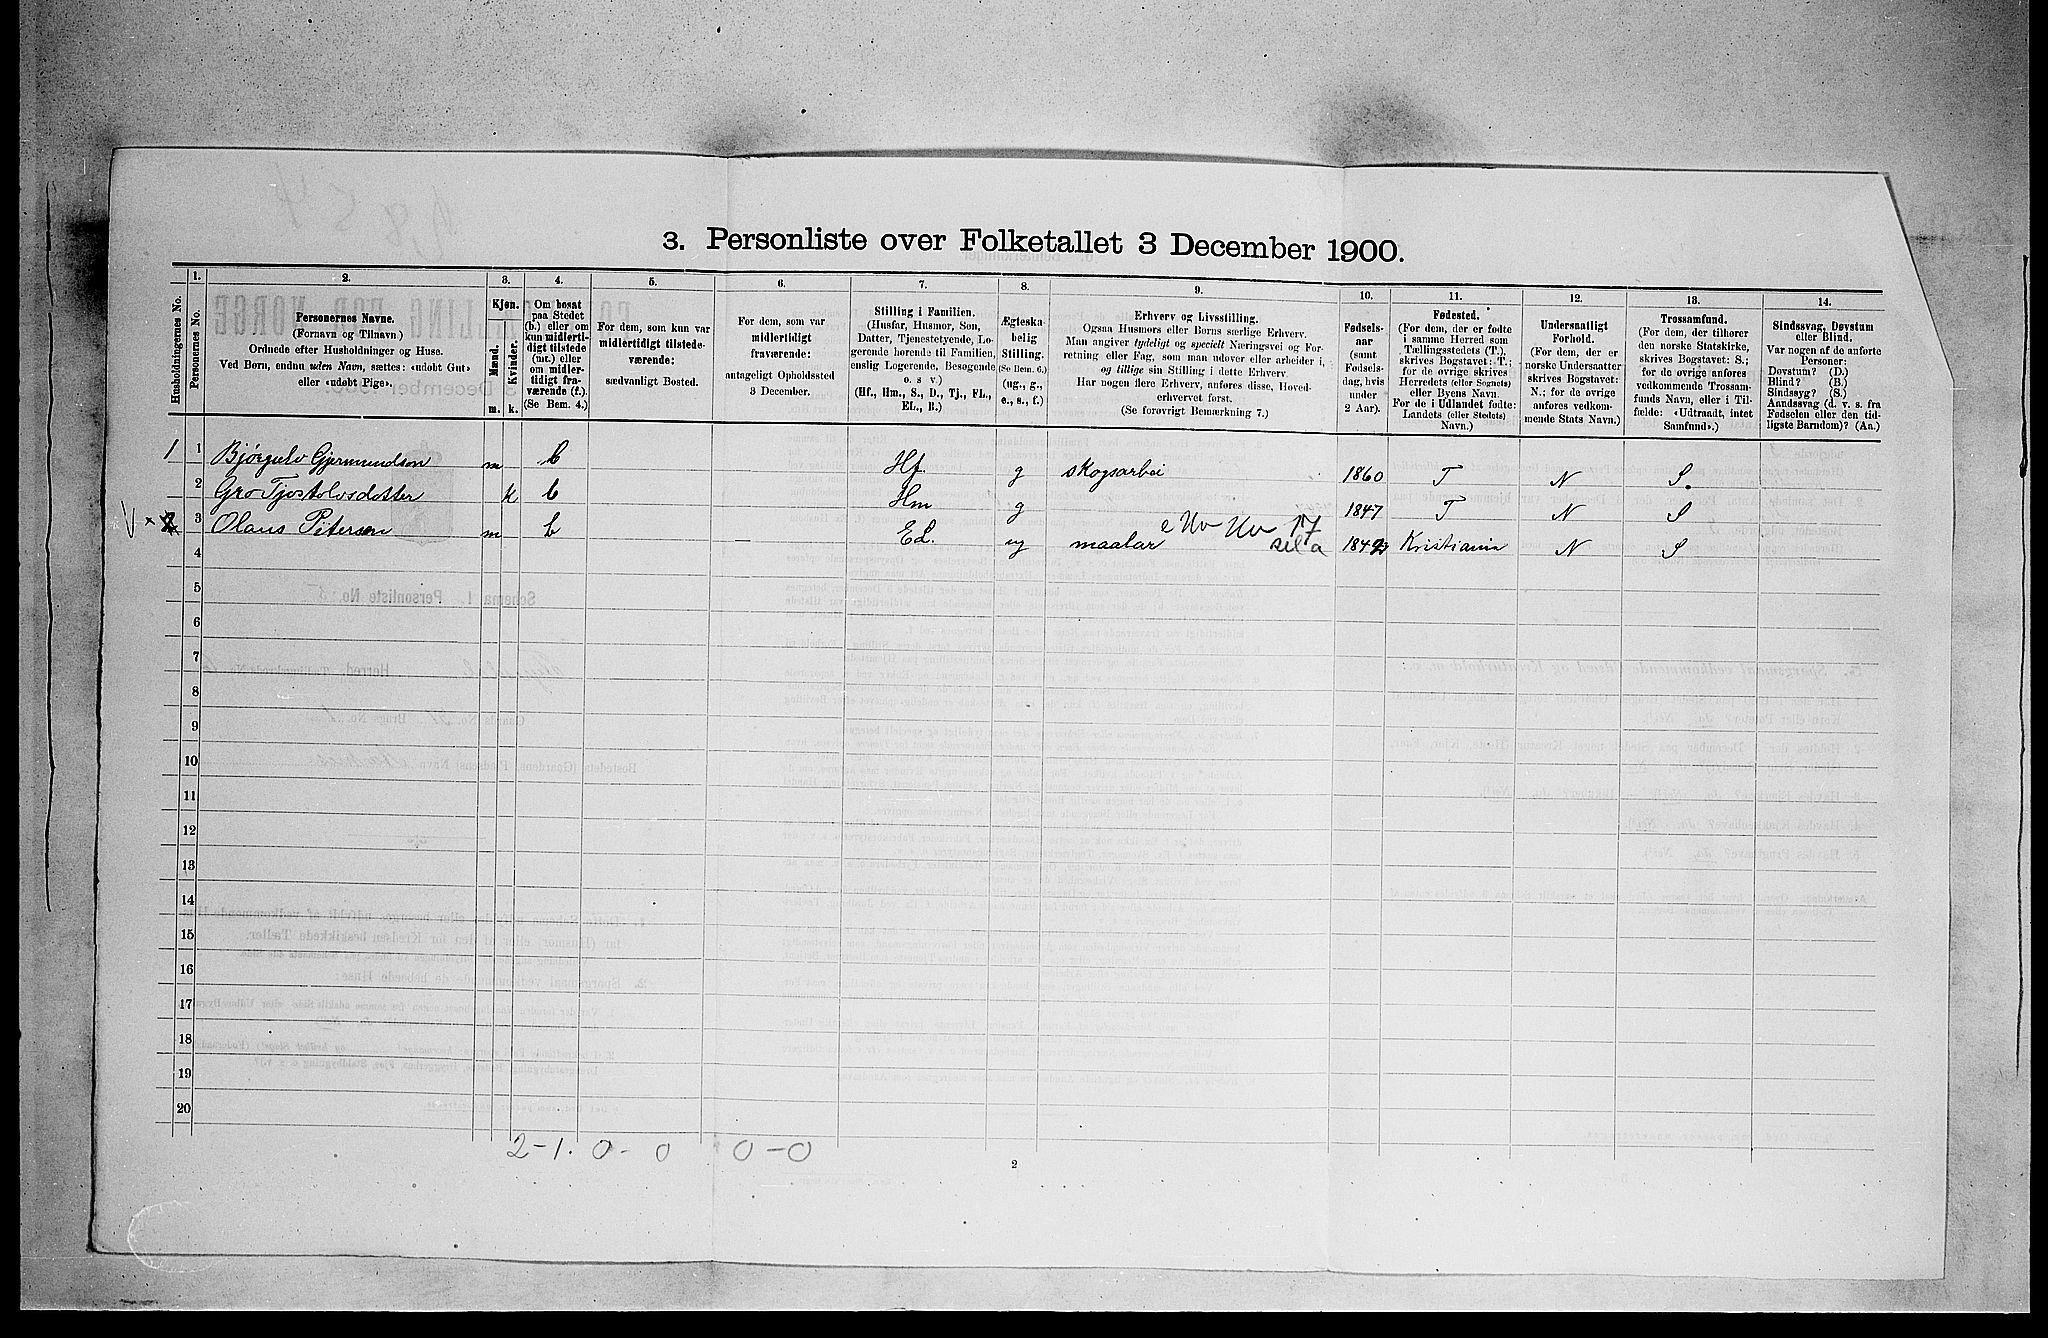 3. Personliste over Folketallet 3 December 1900.
Husholdningernes No.
1.
Personernes No.
2.
Personernes Navne.
(Fornavn og Tilnavn)
Ordnede efter Husholdninger og Huse.
Ved Børn, endnu uden Navn, sættes: «udøbt Gut»
eller «udøbt Pige».
3.
Kjøn.
Mænd.
Kvinder.
m.
k.
4.
Om bosat
paa Stedet
(b.) eller om
kun midlerti-
digt tilstede
(mt.) eller
om midler-
tidigt fra-
værende (f.).
(Se Bem. 4.)
5.
For dem, som kun var
midlertidigt tilstede-
værende:
sædvanligt Bosted.
6.
For dem, som var
midlertidigt
fraværende:
antageligt Opholdssted
3 December.
7.
Stilling i Familien.
(Husfar, Husmor, Søn,
Datter, Tjenestetyende, Lo-
gerende hørende til Familien,
enslig Logerende, Besøgende
o. s. v.)
(Hf., Hm., S., D., Tj., FL.,
EL., B.)
8.
Ægteska-
belig
Stilling.
(Se Bem. 6.)
(ug., g.,
e., s., f.)
9.
Erhverv og Livsstilling.
Ogsaa Husmors eller Børns særlige Erhverv.
Man angiver tydeligt og specielt Næringsvei og For-
retning eller Fag, som man udover eller arbeider i,
og tillige sin Stilling i dette Erhverv.
Har nogen flere Erhverv, anføres disse, Hoved-
erhvervet først.
(Se forøvrigt Bemærkning 7.)
10.
Fødsels-
aar
(samt
Fødsels-
dag, hvis
under
2 Aar).
11.
Fødested.
(For dem, der er fødte
i samme Herred som
Tællingsstedets (T.),
skrives Bogstavet: T.;
for de øvrige skrives
Herredets (eller Sognets)
eller Byens Navn.
For de i Udlandet fødte:
Landets (eller Stedets)
Navn.)
12.
Undersaatligt
Forhold.
(For dem, der er
norske Undersaatter
skrives Bogstavet:
N.; for de øvrige
anføres vedkom-
mende Stats Navn.)
13.
Trossamfund.
(For dem, der tilhører
den norske Statskirke,
skrives Bogstavet: S.;
for de øvrige anføres
vedkommende Trossam-
funds Navn, eller i Til-
fælde: «Udtraadt, intet
Samfund».)
14.
Sindssvag, Døvstum
eller Blind.
Var nogen af de anførte
Personer:
Døvstum? (D.)
Blind? (B.)
Sindssyg? (S.)
Aandssvag (d. v. s. fra
Fødselen eller den tid-
ligste Barndom)? (Aa.)
1 1 Bjørgulv Gjermundson m b Hf. g skogsarbei 1860 T N S.
2 Gro Tjostolvsdotter k b Hm g 1847 T N S
V × 2 3 Olaus Peterson m b — EL. ug maalar 1842 Kristiania N S
4
5
6
7
8
9
10
11
12
13
14
15
16
17
18
19
20
2-1. 0-0 0-0
2